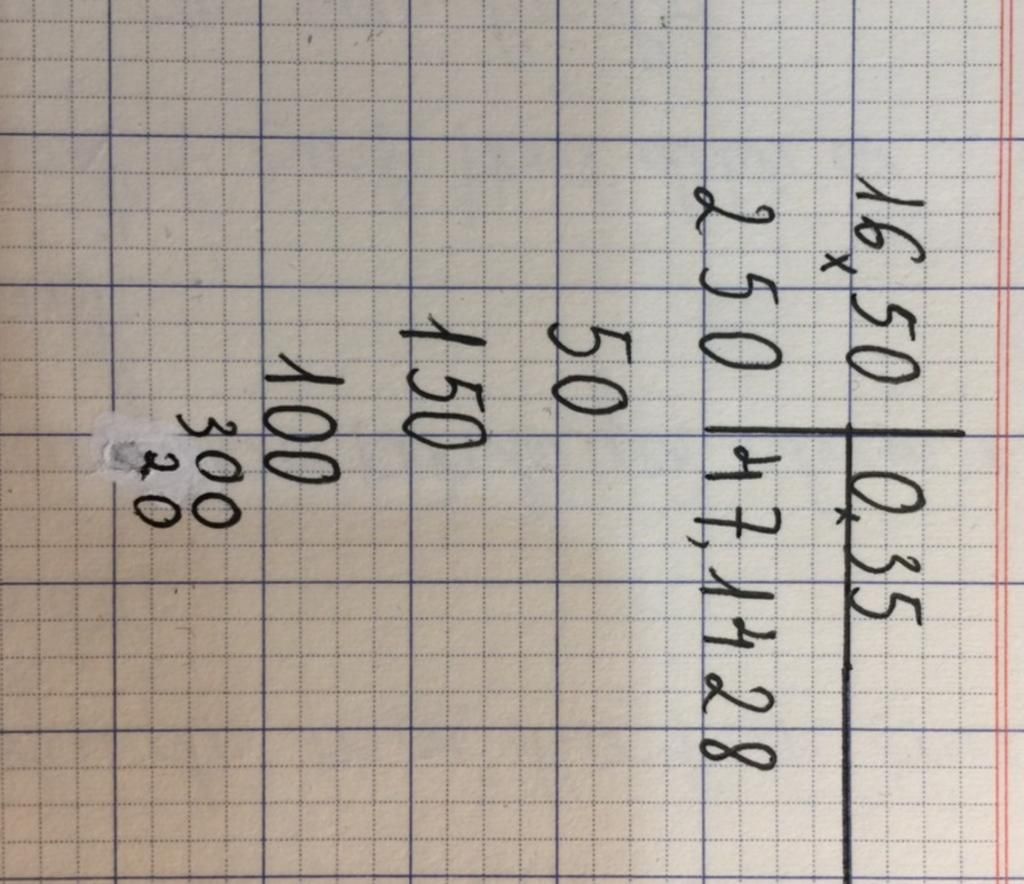 16,50 | 0,35
250 | 47,1428
50
150
100
300
20